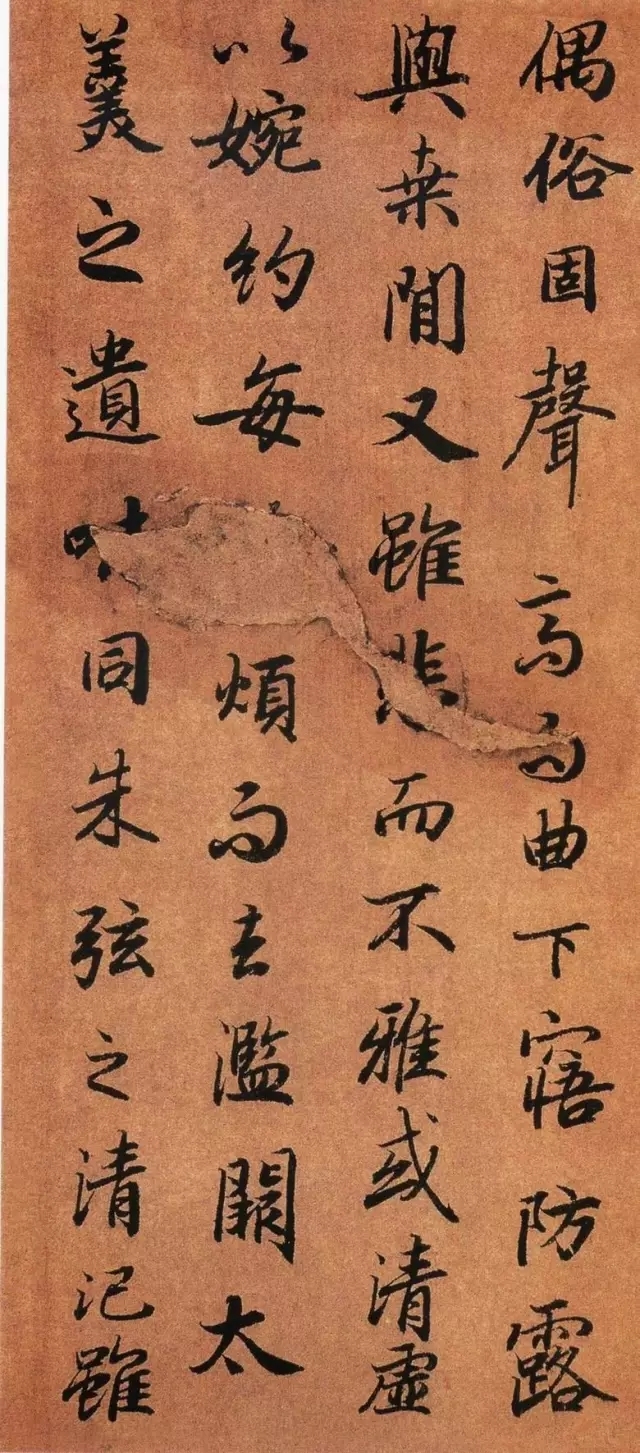 偶俗固聲高而曲下寤防露
與桒閒又雖悲而不雅或清虛
以婉約每煩而去濫闕太
羹之遺味同朱弦之清汜雖